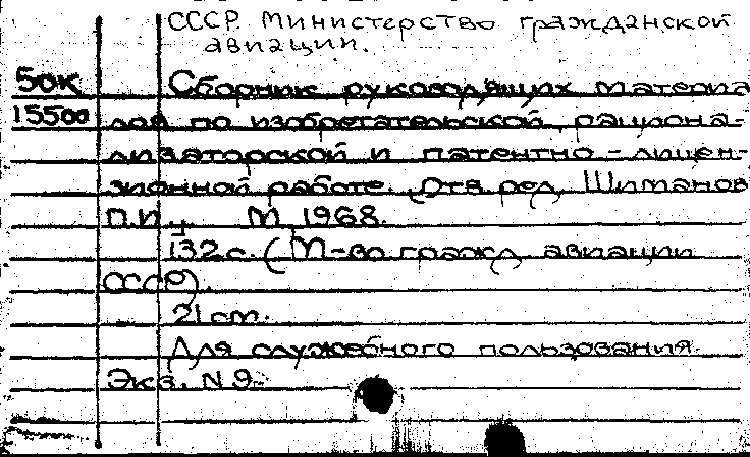 СССР. Министерство гражданской
авиации.
50К Сборник руководящих материа
15500 лов по изобретательской, рациона-
лизаторской и патентно-лицен-
зионной работе. Отв. ред. Шиманов
П.И., М, 1968.
132 с. (М-во гражд. авиации
СССР).
21 cm.
Для служебного пользования
Экз. N 9.